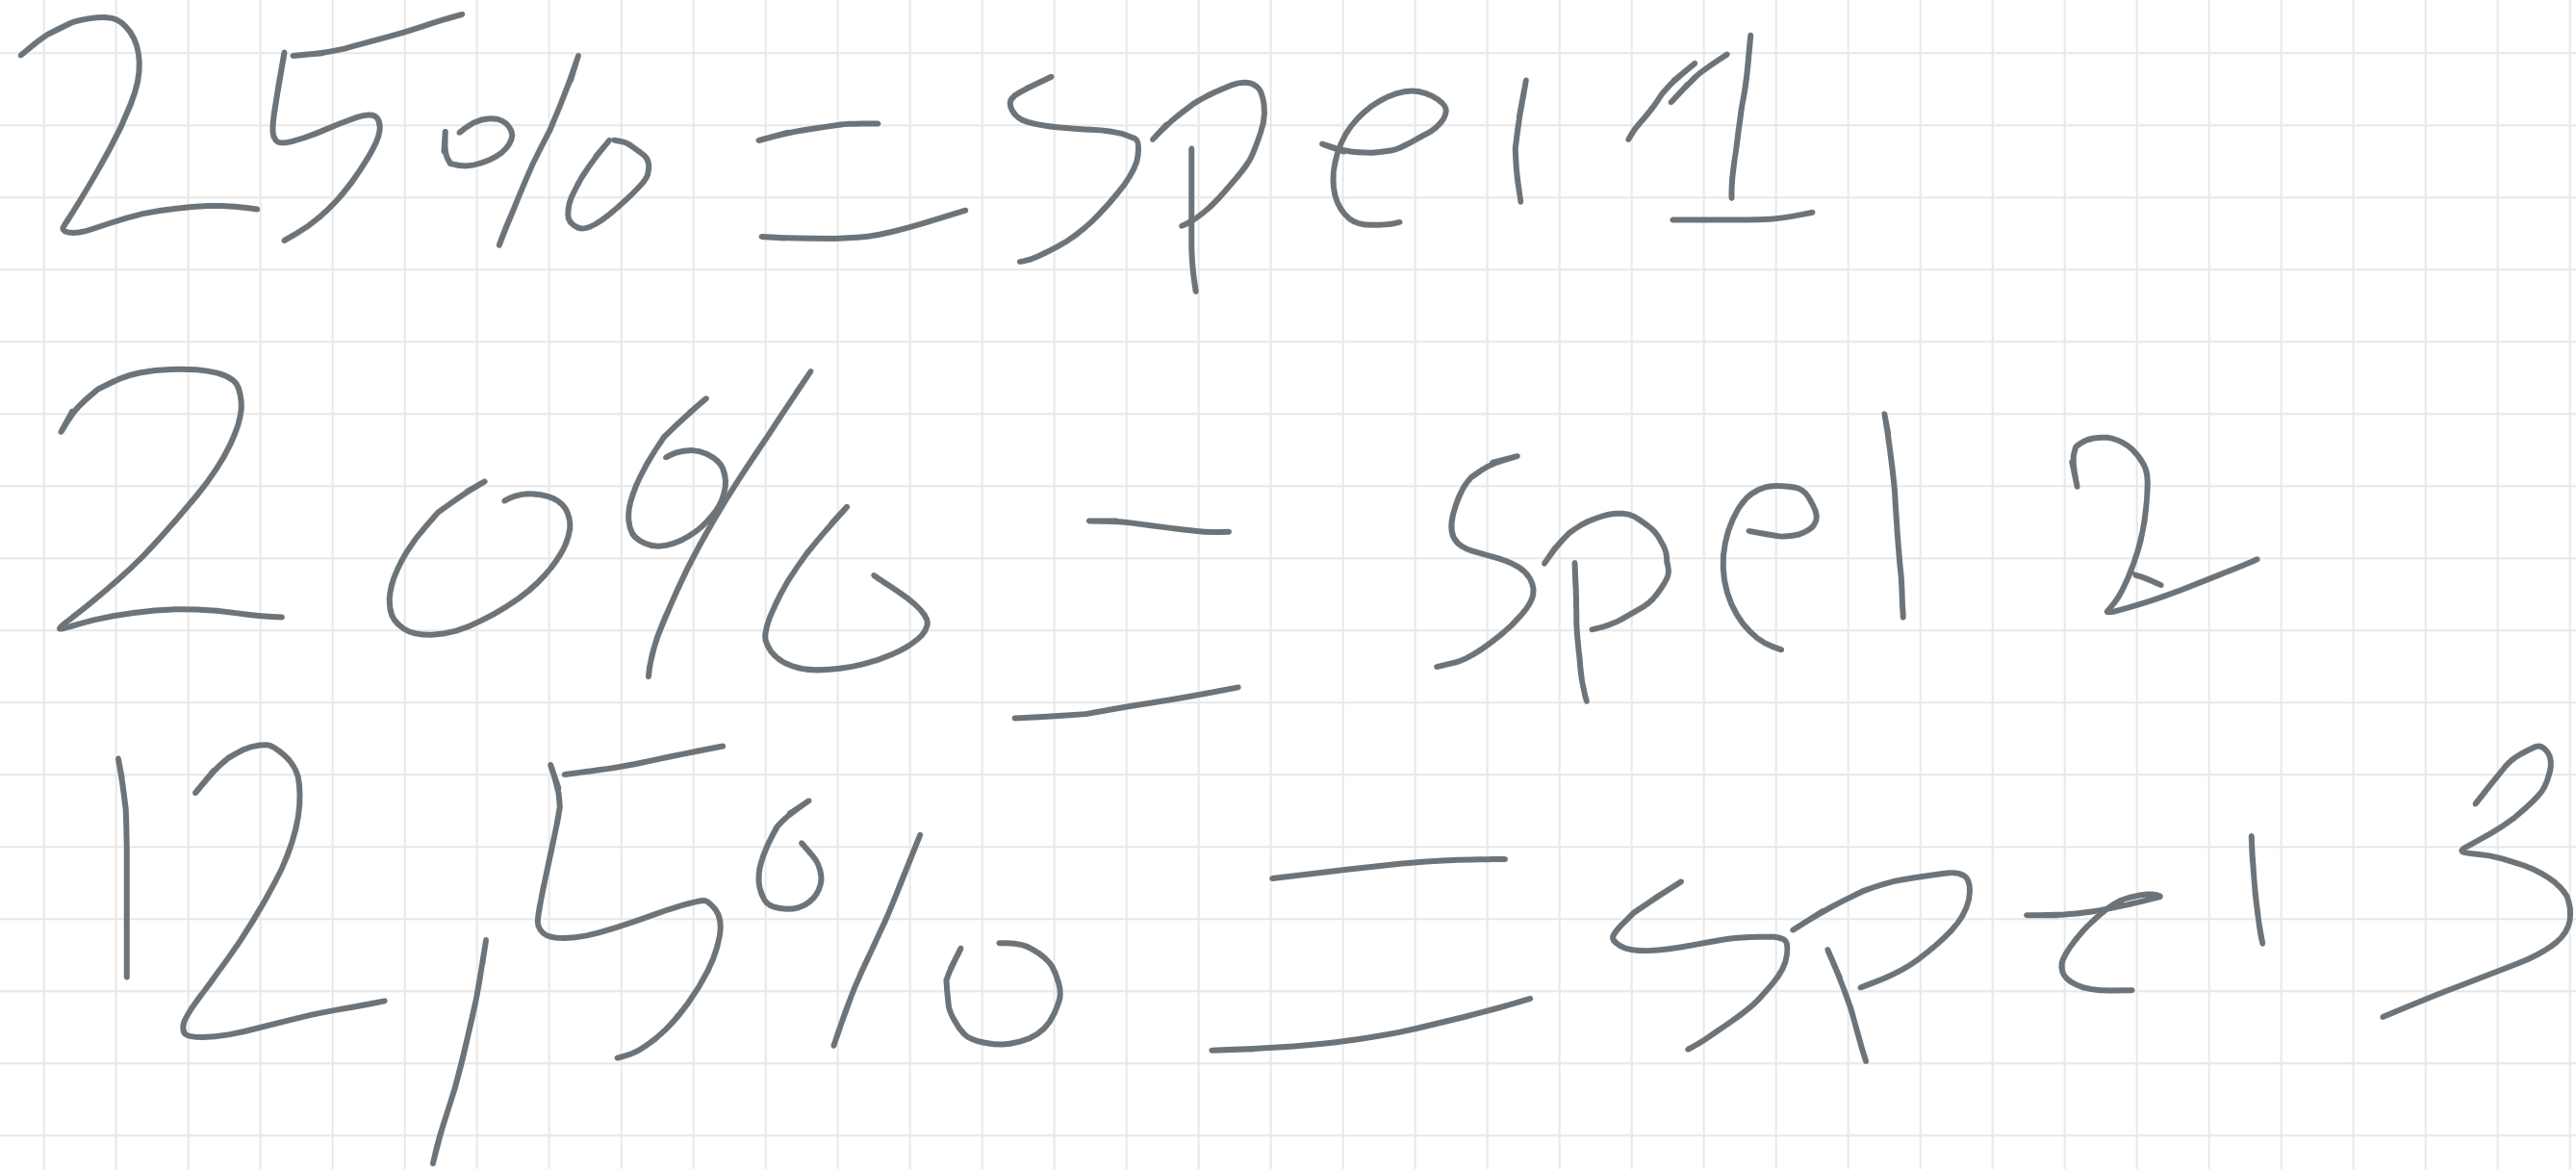 25% = spel 1
20% = spel 2
12,5% = spel 3